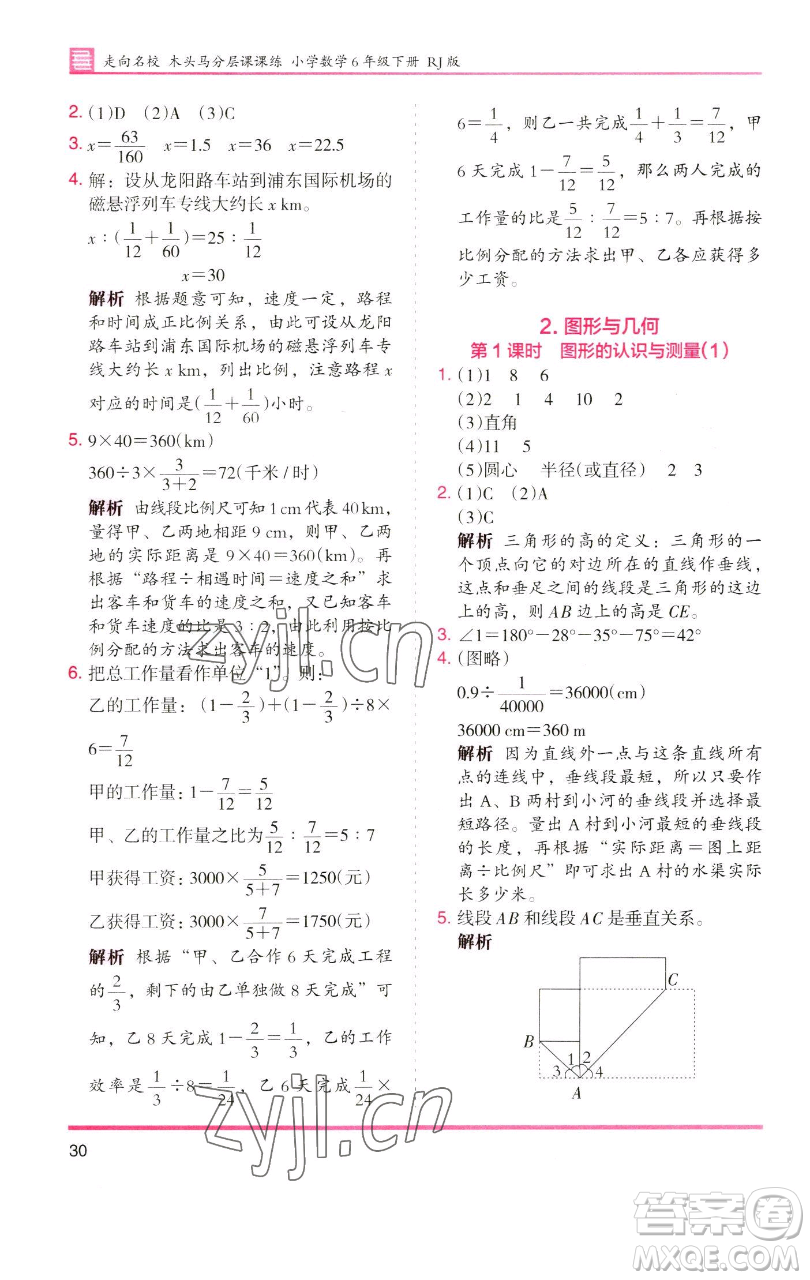 走向名校 木头马分层课课练 小学数学6年级下册 RJ版
2. (1)D (2)A (3)C
3. x=63/160 x=1.5 x=36 x=22.5
4. 解：设从龙阳路车站到浦东国际机场的
磁悬浮列车专线大约长 x km。
x∶(1/12+1/60)=25∶1/12
x=30
解析 根据题意可知，速度一定，路程
和时间成正比例关系，由此可设从龙阳
路车站到浦东国际机场的磁悬浮列车专
线大约长 x km，列出比例，注意路程 x
对应的时间是(1/12+1/60)小时。
5. 9×40=360(km)
360÷3×3/(3+2)=72(千米/时)
解析 由线段比例尺可知1 cm代表40 km，
量得甲、乙两地相距 9 cm，则甲、乙两
地的实际距离是 9×40=360(km)。再
根据“路程÷相遇时间=速度之和”求
出客车和货车的速度之和，又已知客车
和货车速度的比是3∶2，由此利用按比
例分配的方法求出客车的速度。
6. 把总工作量看作单位“1”。则：
乙的工作量：(1-2/3)+(1-2/3)÷8×
6=7/12
甲的工作量：1-7/12=5/12
甲、乙的工作量之比为5/12∶7/12=5∶7
甲获得工资：3000×5/(5+7)=1250(元)
乙获得工资：3000×7/(5+7)=1750(元)
解析 根据“甲、乙合作 6 天完成工程
的2/3，剩下的由乙单独做 8 天完成”可
知，乙 8 天完成 1-2/3=1/3，乙的工作
效率是1/3÷8=1/24，乙 6 天完成1/24×
6=1/4，则乙一共完成1/4+1/3=7/12，甲
6 天完成 1-7/12=5/12，那么两人完成的
工作量的比是5/12∶7/12=5∶7。再根据按
比例分配的方法求出甲、乙各应获得多
少工资。
2. 图形与几何
第1课时 图形的认识与测量(1)
1. (1)1 8 6
(2)2 1 4 10 2
(3)直角
(4)11 5
(5)圆心 半径(或直径) 2 3
2. (1)C (2)A
(3)C
解析 三角形的高的定义：三角形的一
个顶点向它的对边所在的直线作垂线，
这点和垂足之间的线段是三角形的这边
上的高，则 AB 边上的高是 CE。
3. ∠1=180°-28°-35°-75°=42°
4. (图略)
0.9÷1/40000=36000(cm)
36000 cm=360 m
解析 因为直线外一点与这条直线所有
点的连线中，垂线段最短，所以只要作
出 A、B 两村到小河的垂线段并选择最
短路径。量出 A 村到小河最短的垂线段
的长度，再根据“实际距离=图上距
离÷比例尺”即可求出 A 村的水渠实际
长多少米。
5. 线段 AB 和线段 AC 是垂直关系。
解析
C
B
1 2
3 4
A
30
zyjl.cn
zyjl.cn
答案圈
MXQE.COM